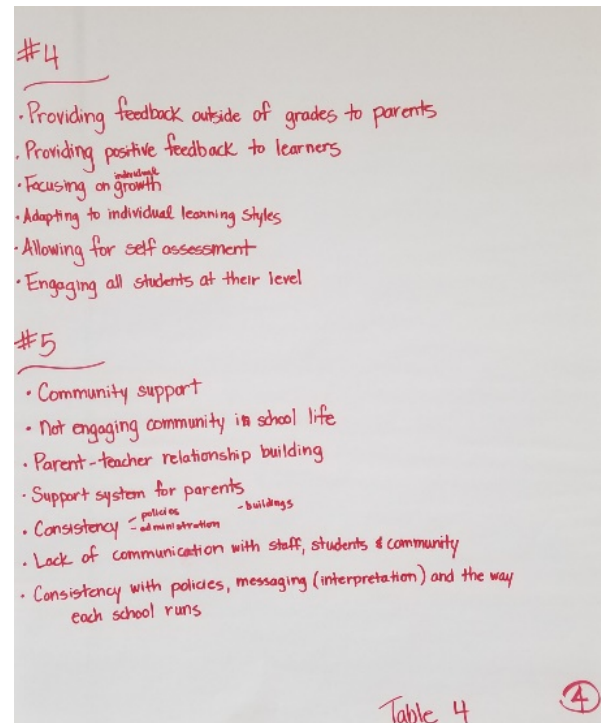 #4
· Providing feedback outside of grades to parents
· Providing positive feedback to learners
· Focusing on individual growth
· Adapting to individual learning styles
· Allowing for self assessment
· Engaging all students at their level
#5
· Community support
· Not engaging community in school life
· Parent-teacher relationship building
· Support system for parents
· Consistency - policies - administration - buildings
· Lack of communication with staff, students & community
· Consistency with policies, messaging (interpretation) and the way
each school runs
Table 4
4